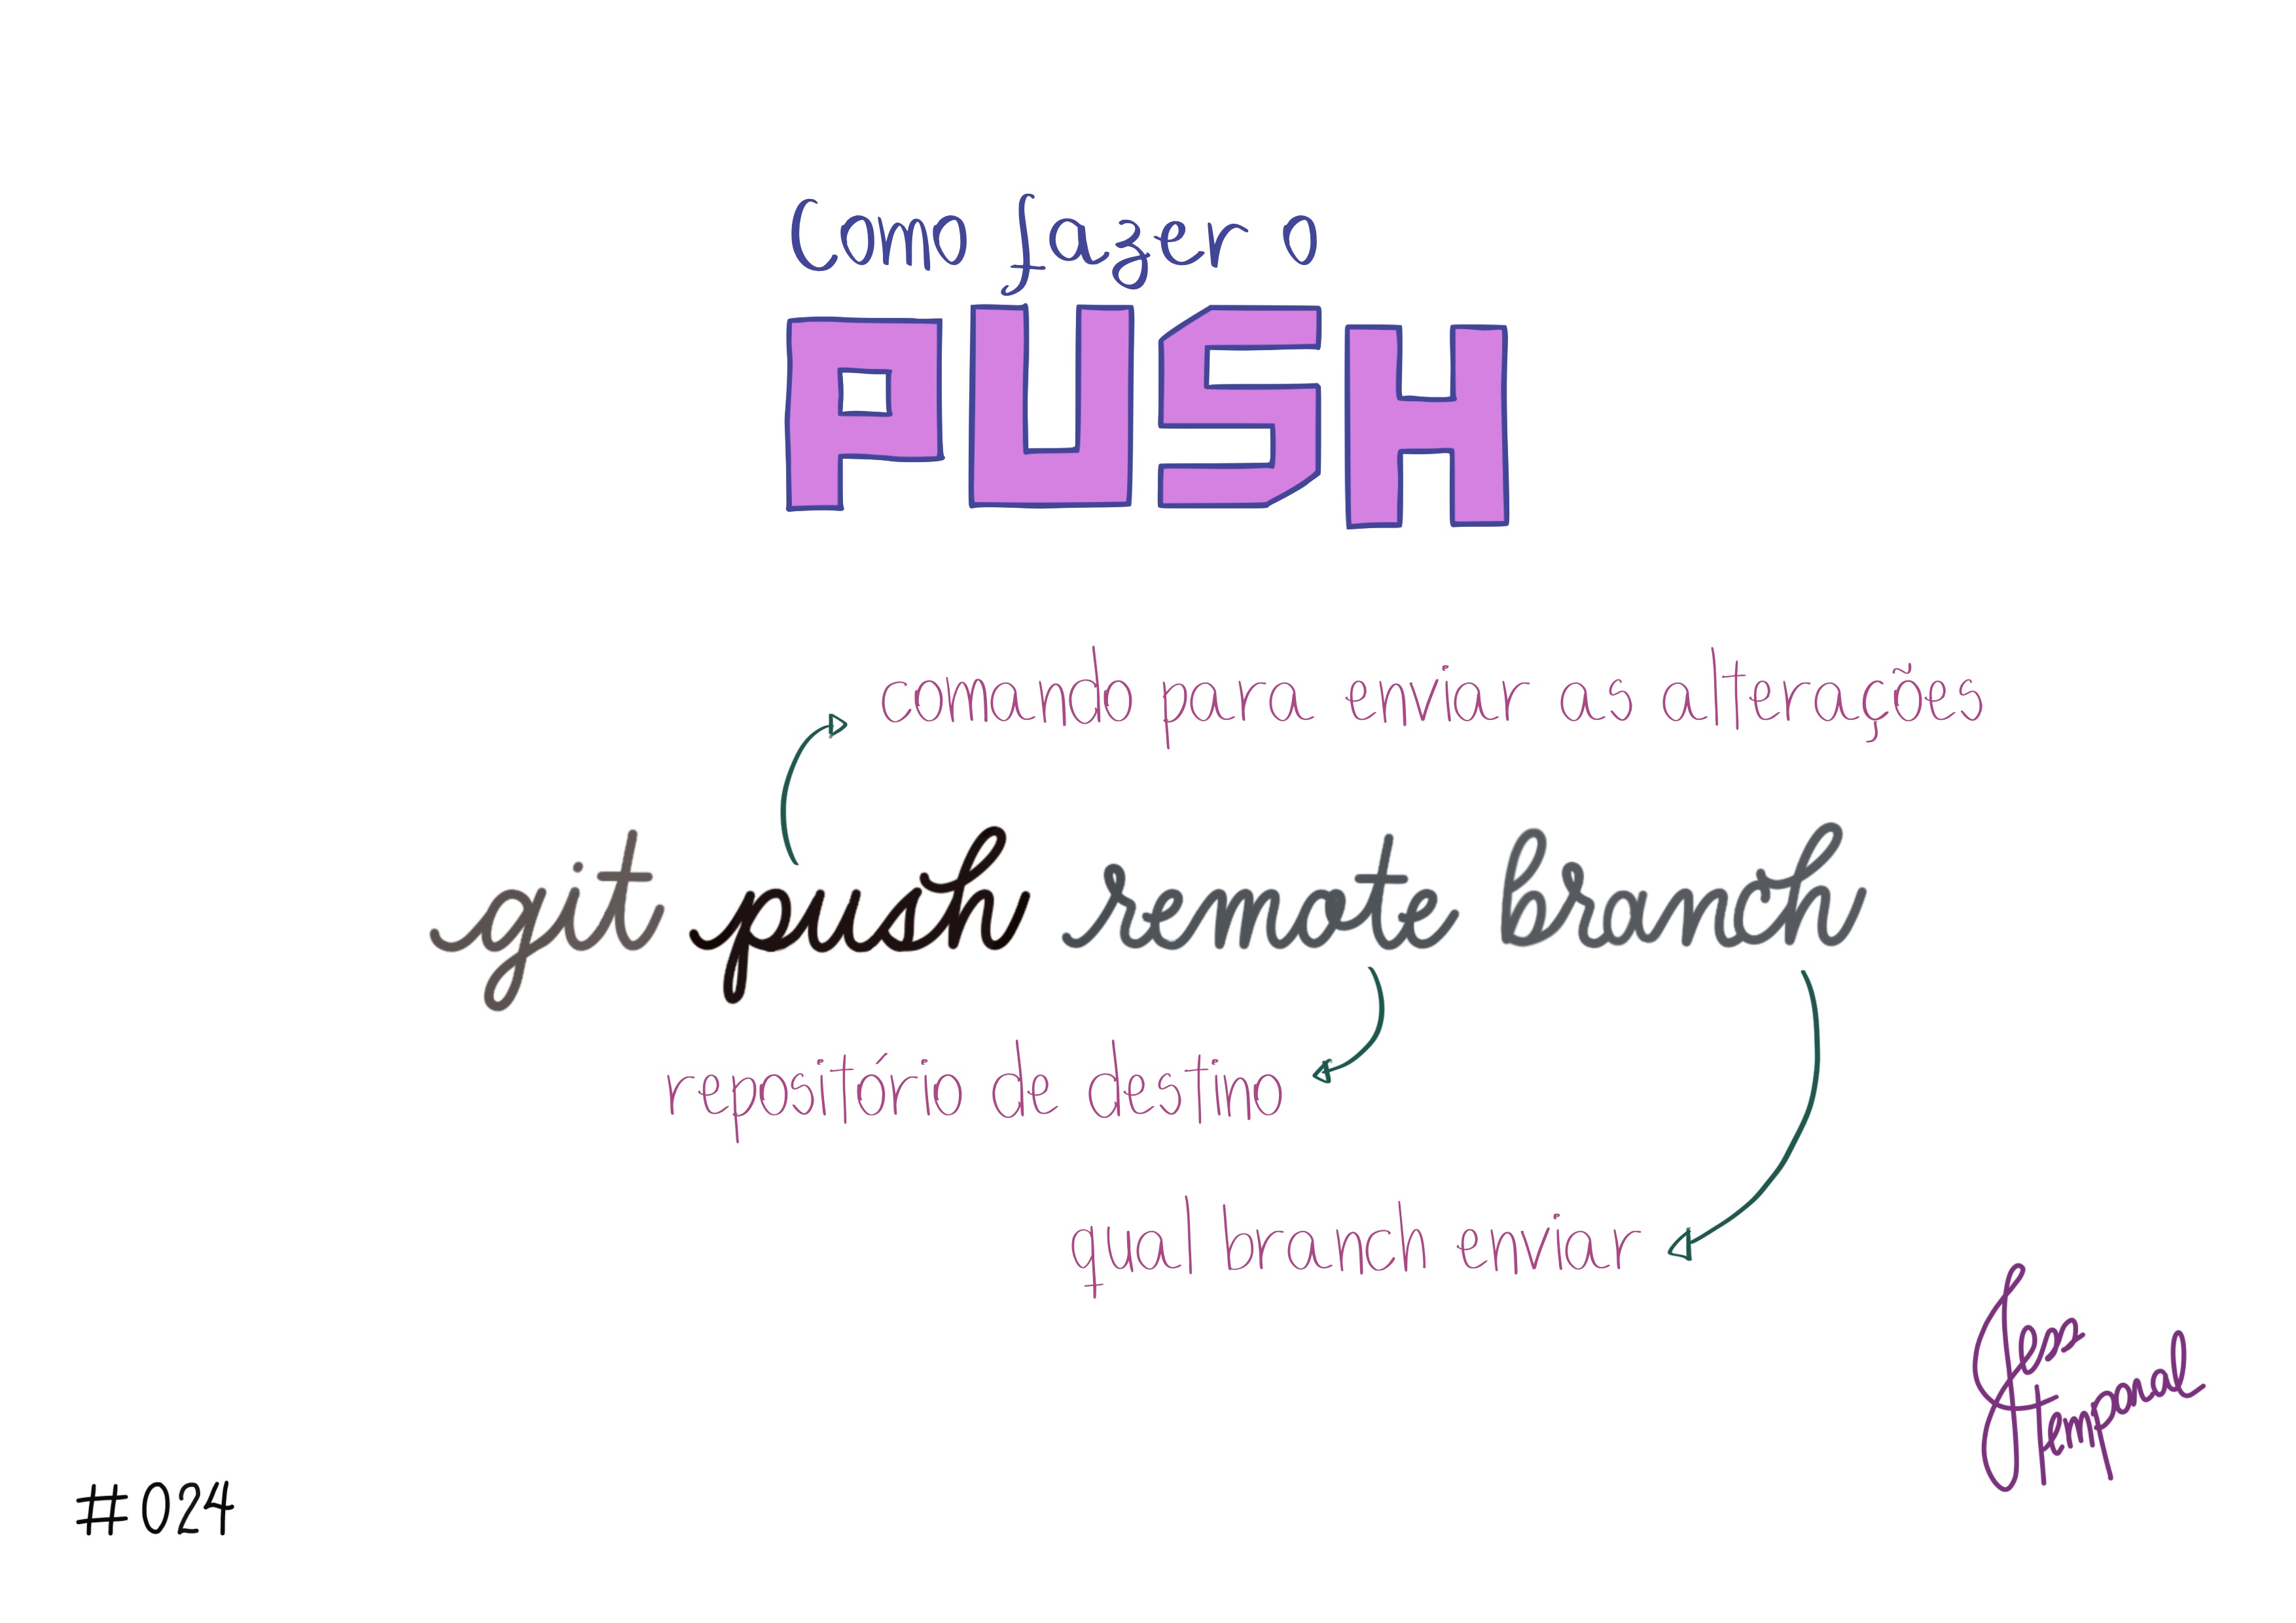 Como fazer o
PUSH
comando para enviar as alterações
git push remote branch
repositório de destino
qual branch enviar
Jess
Temporal
#024